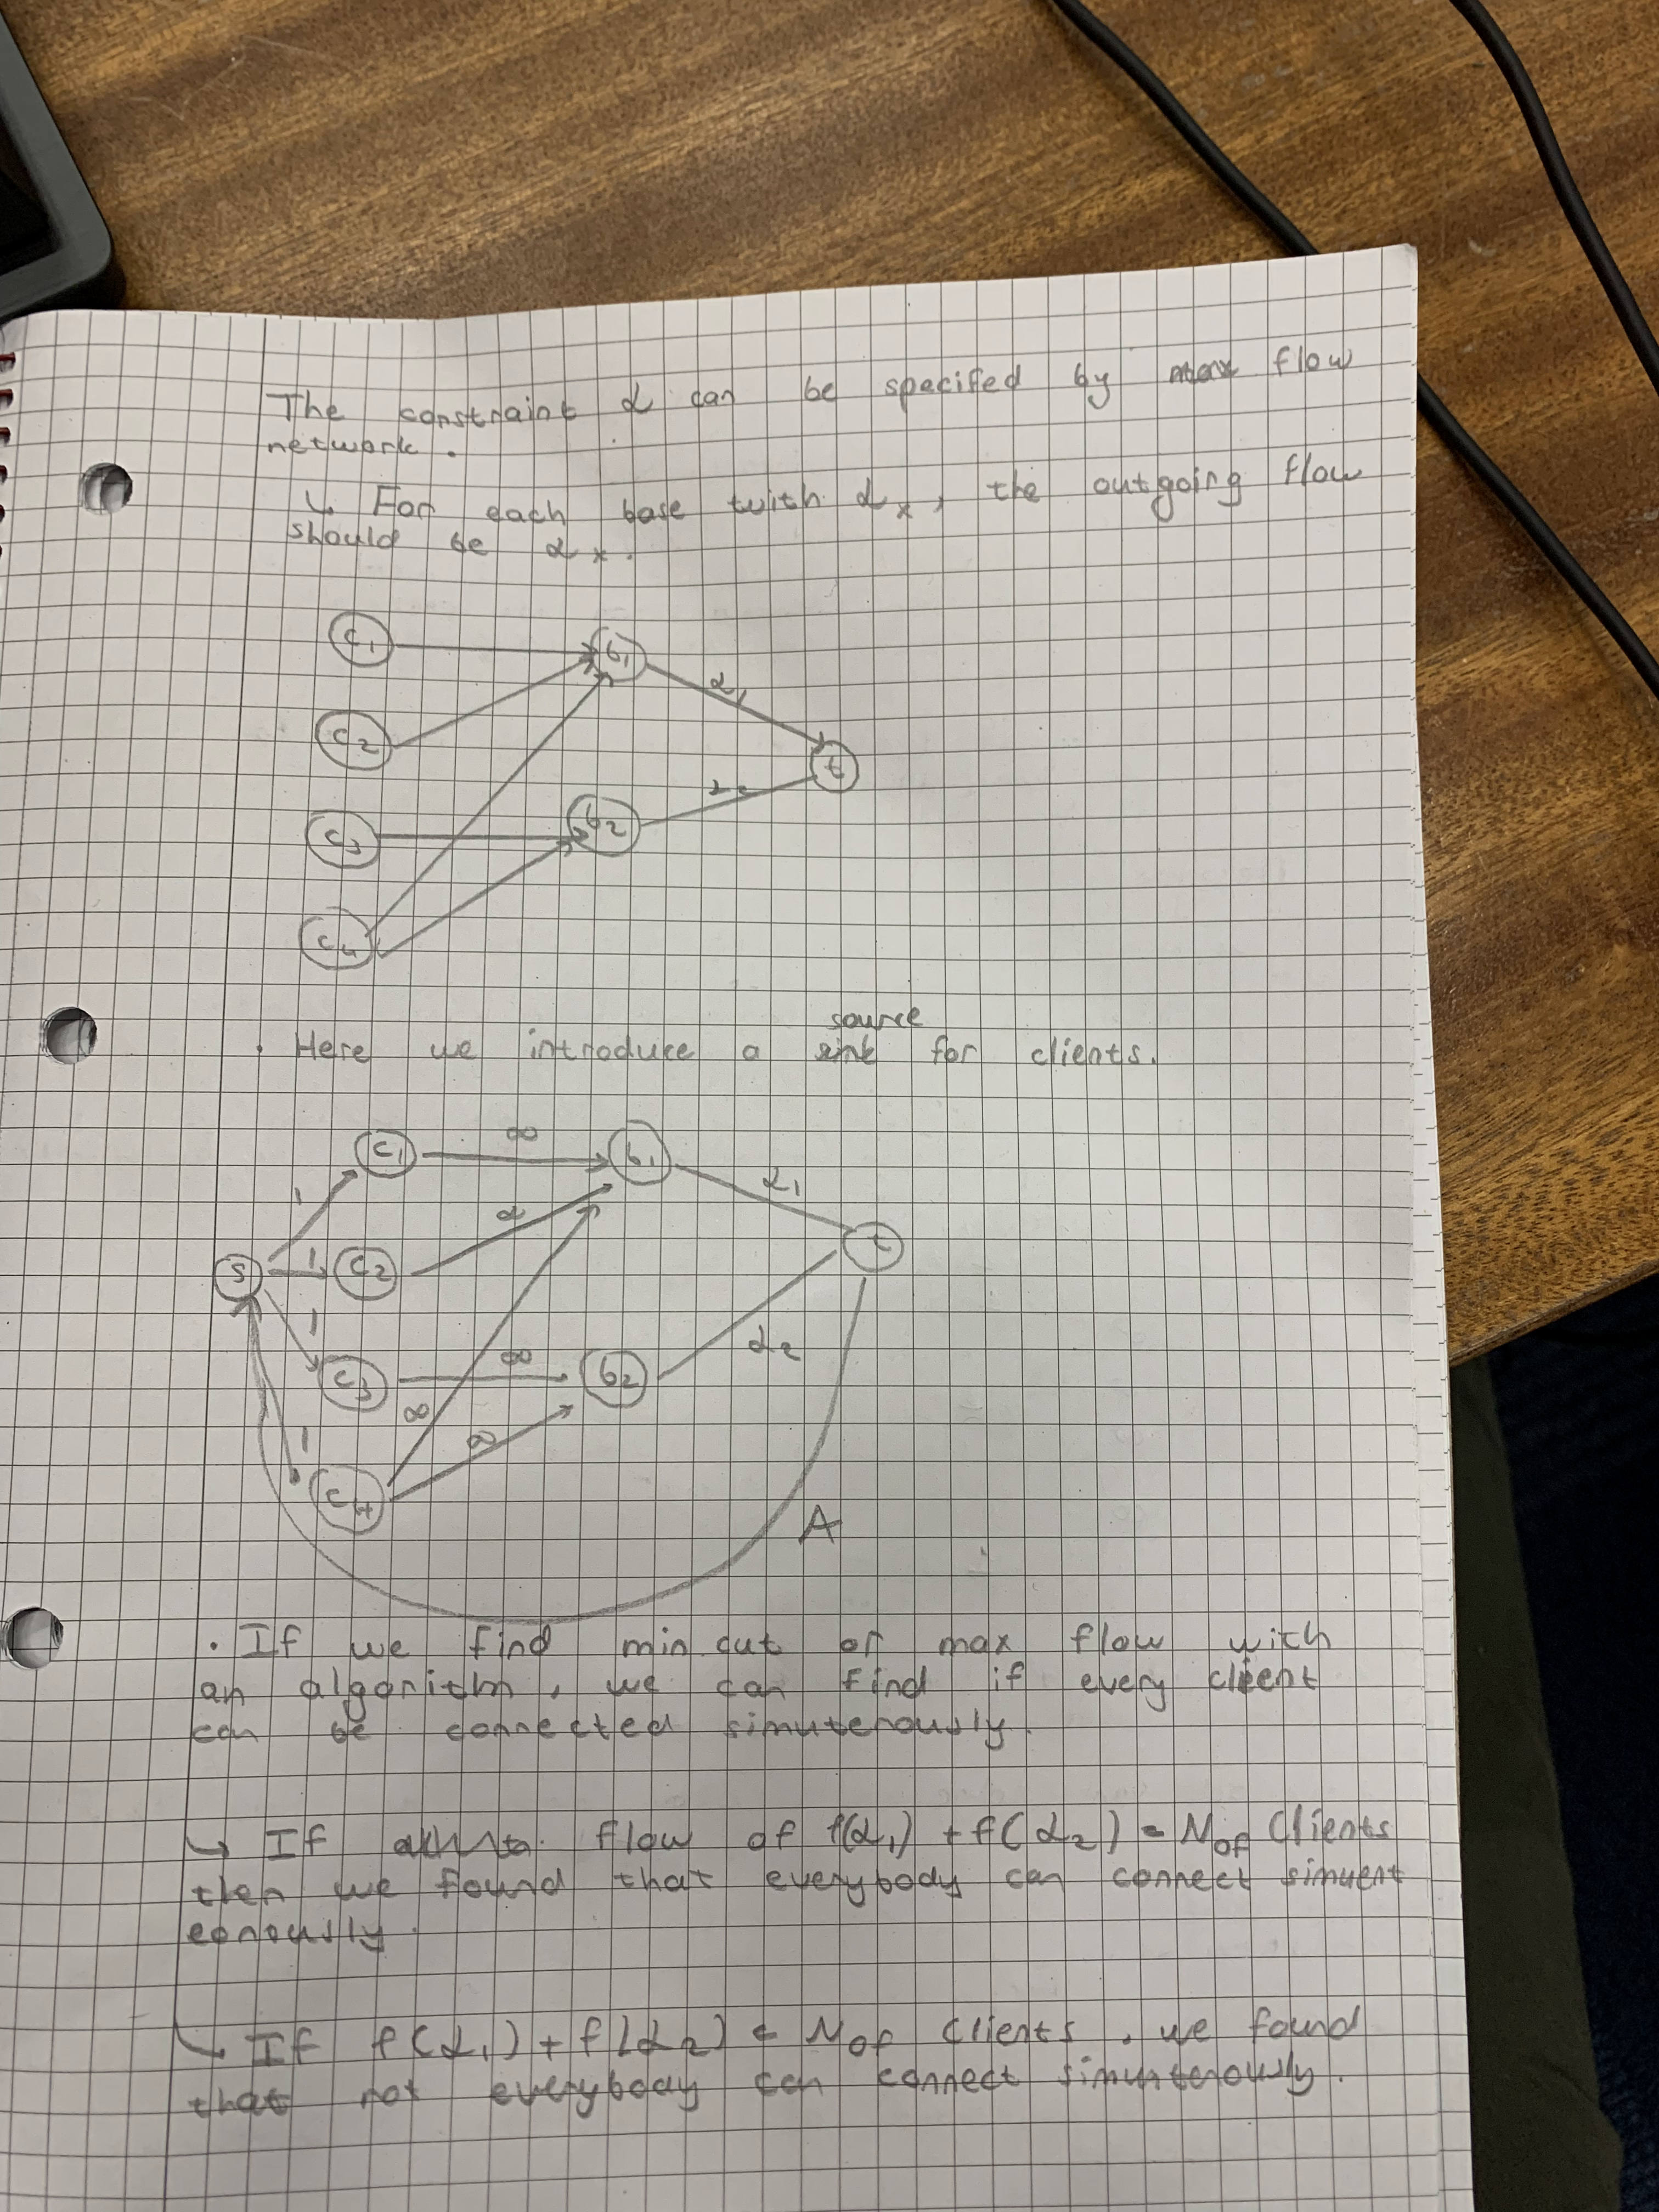 The constraint α can be specifed by max flow
network.
↳ For each base with αx, the outgoing flow
should be αx.
c1
b1
α1
c2
t
α2
c3
b2
c4
source
Here we introduce a sink for clients.
c1 ∞ b1
α1
1
∞
s 1 c2
t
1
∞
α2
c3 b2
∞
1
∞
c4
A
. If we find min cut or max flow with
an algorithm, we can find if every client
can be connected simuterously.
↳ If flow of f(α1) + f(α2) = Nof Clients
then we found that everybody can connect simuent
eonously.
↳ If f(α1) + f(α2) < Nof Clients, we found
that not everybody can connect simunterously.